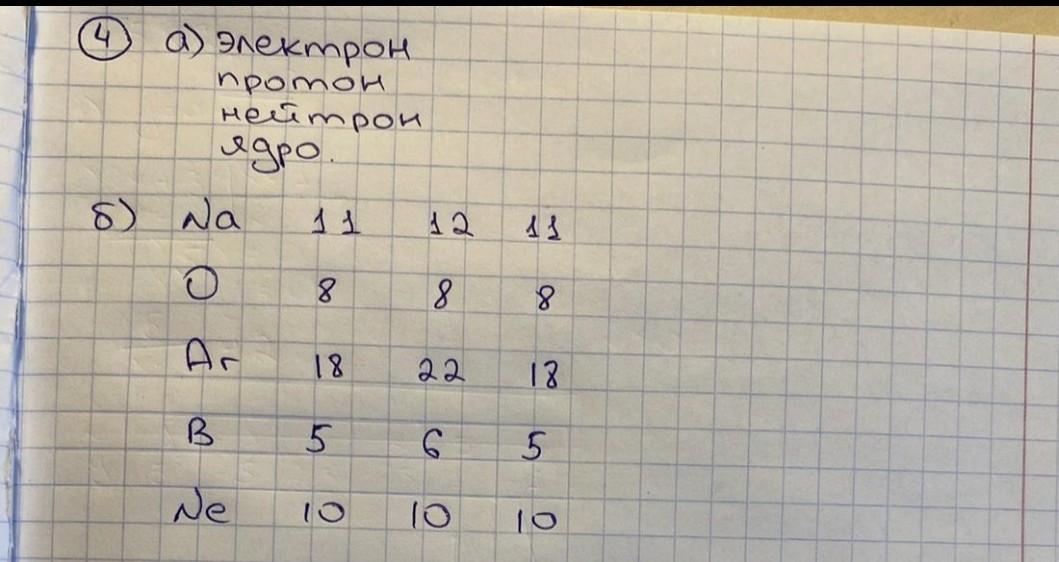 4 а) электрон
протон
нейтрон
ядро.
б) Na 11 12 11
O 8 8 8
Ar 18 22 18
B 5 6 5
Ne 10 10 10